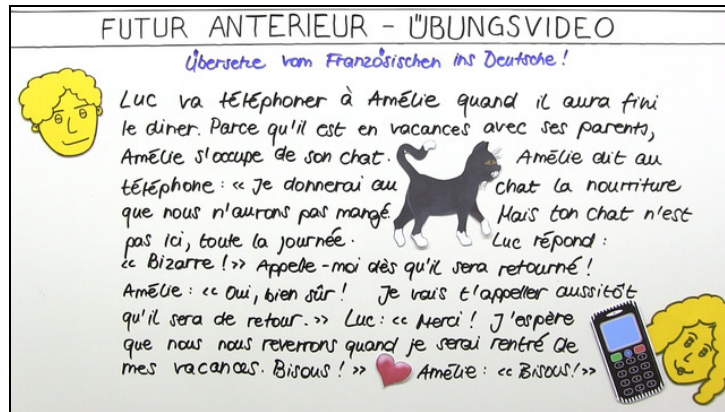 FUTUR ANTERIEUR - ÜBUNGSVIDEO
Übersetze vom Französischen ins Deutsche!
Luc va téléphoner à Amélie quand il aura fini
le dîner. Parce qu'il est en vacances avec ses parents,
Amélie s'occupe de son chat. Amélie dit au
téléphone: « Je donnerai au chat la nourriture
que nous n'aurons pas mangé. Mais ton chat n'est
pas ici, toute la journée. Luc répond:
« Bizarre!» Appelle-moi dès qu'il sera retourné!
Amélie: « Oui, bien sûr! Je vais t'appeller aussitôt
qu'il sera de retour.» Luc: « Merci! J'espère
que nous nous reverrons quand je serai rentré de
mes vacances. Bisous!» Amélie: « Bisous!»